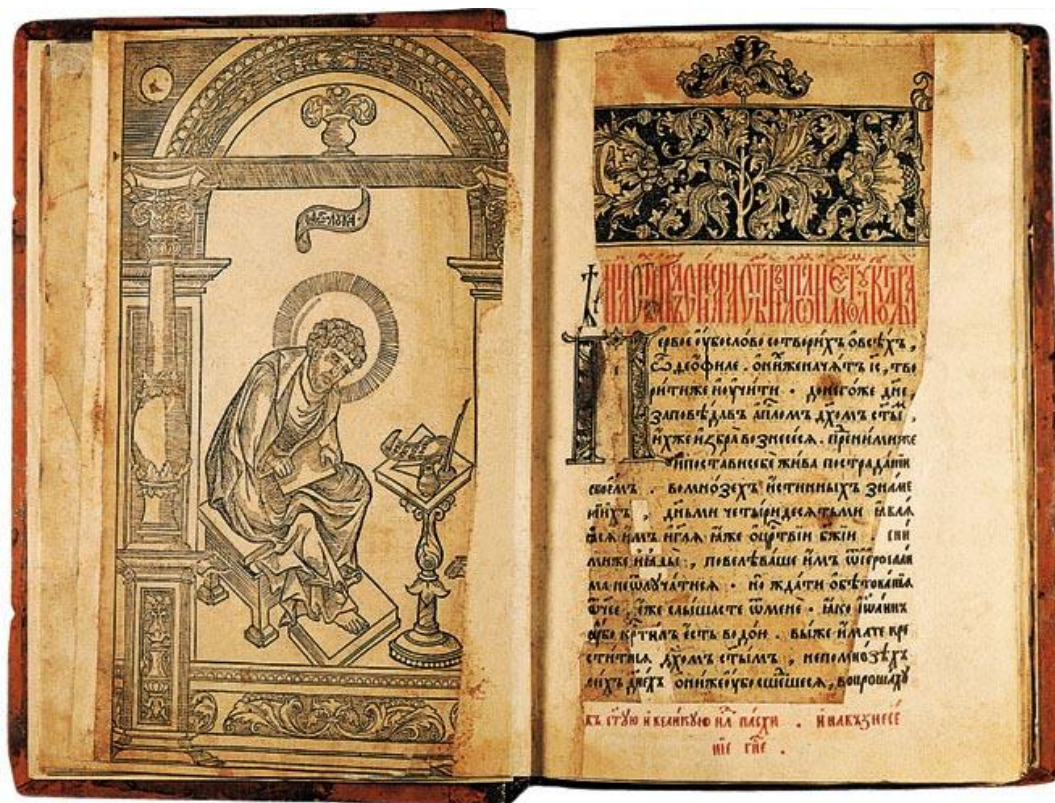 Первое ᲂу҆́бо сло́во сотвори́хъ ѡ҆ всѣ́хъ,
ѽ, деѡ҆́филе. ѡ҆ ни́хже нача́тъ і҆с, тво
ри́тиже и҆ ᲂу҆чи́ти. до него́же дн҃е,
заповѣ́давъ а҆пⷭ҇ломъ дх҃омъ ст҃ы́м
и҆́хже и҆збра̀ вознесе́сѧ. пред ни́миже
и҆ поста́ви себѐ жи́ва по страда́нїи
свое́мъ. во мно́зехъ и҆́стинныхъ зна́ме
нїихъ, дн҃ьми четы́ридесѧтьми ꙗ҆влѧ́
ѧсѧ и҆̀мъ и҆ гл҃ѧ ꙗ҆́же ѡ҆ црⷭ҇твїи бж҃їи. сни́
миже и҆ ꙗ҆ды̀, повелѣва́ше и҆̀мъ ѿ і҆еросали
ма не ѿлꙋча́тисѧ. но жда́ти ѡ҆бѣтова́нїѧ
ѻ҆́ч҃ее, є҆́же слы́шасте ѿ менѐ. ꙗ҆́ко і҆ѡа́ннъ
ᲂу҆́бо крⷭ҇ти́лъ є҆́сть водо́ю. вы́же и҆́мате кре
сти́тисѧ дх҃омъ ст҃ы́мъ, не по мно́зѣхъ
си́хъ дн҃ехъ. ѻ҆ни́же ᲂу҆́бо сше́дшесѧ, вопроша́хꙋ
въ ст҃ꙋ́ю и҆ вели́кꙋю нлⷣю па́схи. и҆ на възнесе́
нїе гн҃е.